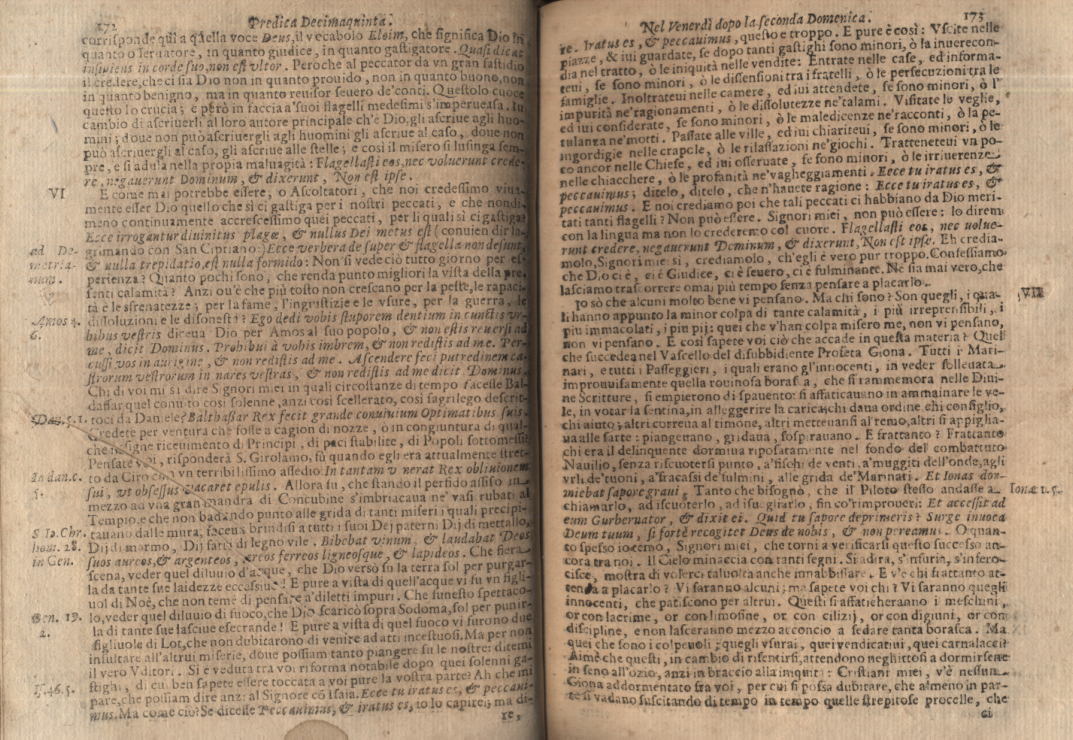 172 Predica Decimaquinta.
corrisponde quì a quella voce Deus, il vocabolo Eloim, che significa Dio in
quanto osseruatore, in quanto giudice, in quanto gastigatore. Quasi dicat
insipiens in corde suo, non est vltor. Peroche al peccator da vn gran fastidio
il credere, che ci sia Dio non in quanto prouido, non in quanto buono, non
in quanto benigno, ma in quanto reuisor seuero de'conti. Questo lo cuoce,
questo lo crucia; e però in faccia a'suoi flagelli medesimi s'imperuersa. In
cambio di ascriuerli al loro autore principale ch'è Dio, gli ascriue agli huo-
mini; doue non può ascriuergli agli huomini gli ascriue al caso, doue non
può ascriuergli al caso, gli ascriue alle stelle; e così il misero si lusinga sem-
pre, e si adula nella propia maluagità: Flagellasti eos, nec voluerunt crede-
re, negauerunt Dominum, & dixerunt, Non est ipse.
VI
E come mai potrebbe essere, o Ascoltatori, che noi credessimo viua-
mente esser Dio quello che sì ci gastiga per i nostri peccati, e che nondi-
meno continuamente accrescessimo quei peccati, per li quali si ci gastiga?
Ecce irrogantur diuinitus plagæ, & nullus Dei metus est (conuien dir la-
ad De-
metria-
num.
grimando con San Cipriano) Ecce verbera de super & flagella non desunt,
& nulla trepidatio, est nulla formido: Non si vede ciò tutto giorno per es-
perienza? Quanto pochi sono, che renda punto migliori la vista della pre-
senti calamità? Anzi ou'è che più tosto non crescano per la peste, le rapaci-
tà e le sfrenatezze; per la fame, l'ingiustizie e le vsure, per la guerra, le
Amos 4.
6.
dissoluzioni e le disonestà? Ego dedi vobis stuporem dentium in cunctis vr-
bibus vestris diceua Dio per Amos al suo popolo, & non estis reuersi ad
me, dicit Dominus. Prohibui à vobis imbrem, & non redistis ad me. Per-
cussi vos in aurigine, & non redistis ad me. Ascendere feci putredinem ca-
strorum vestrorum in nares vestras, & non redistis ad me dicit Dominus.
Chi di voi mi sà dire Signori miei in quali circostanze di tempo facesse Bal-
daffar quel conuito così solenne, anzi così scellerato, così sagrilego descrit-
Dan. 5. 1.
toci da Daniele? Balthassar Rex fecit grande conuiuium Optimatibus suis.
Credete per ventura che fosse a cagion di nozze, o in congiuntura di qual-
che insigne riceuimento di Principi, di paci stabilite, di Popoli sottomessi?
Pensate voi, risponderà S. Girolamo, fù quando egli era attualmente stret-
In dan. c.
5.
to da Ciro con vn terribilissimo assedio: In tantam venerat Rex obliuionem
sui, vt obsessus vacaret epulis. Allora fu, che stando il perfido assiso in
mezzo ad vna gran mandra di Concubine s'imbriacaua ne' vasi rubati al
Tempio, e che non badando punto alle grida di tanti miseri i quali precipi-
S Io. Chr.
hom. 28.
in Gen.
tauano dalle mura, faceua brindisi a tutti i suoi Dei paterni Dij di metallo,
Dij di marmo, Dij fatti di legno vile. Bibebat vinum, & laudabat Deos
suos aureos, & argenteos, æreos ferreos ligneosque, & lapideos. Che fiera
scena, veder quel diluuio d'acque, che Dio versò su la terra sol per purgar-
la da tante sue laidezze eccessiue! E pure a vista di quell'acque vi fu vn figli-
uol di Noè, che non teme di pensare a'diletti impuri. Che funesto spettaco-
Gen. 19.
2.
lo, veder quel diluuio di fuoco, che Dio scaricò sopra Sodoma, sol per punir-
la di tante sue lasciue esecrande! E pure a vista di quel fuoco vi furono due
figliuole di Lot, che non dubitarono di venire ad atti incestuosi. Ma per non
insultare all'altrui miserie, doue possiam tanto piangere su le nostre: ditemi
il vero Vditori. Si è veduta tra voi riforma notabile dopo quei solenni ga-
stighi, di cui ben sapete essere toccata a voi pure la vostra parte? Ah che mi
Is. 46. 5.
pare, che possiam dire anzi al Signore cō Isaia. Ecce tu iratus es, & peccaui-
mus. Ma come ciò? Se dicesse Peccauimus, & iratus es, io lo capirei; ma di-
re,
Nel Venerdì dopo la seconda Domenica. 173
re. Iratus es, & peccauimus, questo è troppo. E pure è così: Vscite nelle
piazze, & iui guardate, se dopo tanti gastighi sono minori, ò la inuerecon-
dia nel tratto, ò le iniquità nelle vendite: Entrate nelle case, ed informa-
teui, se sono minori, ò le dissensioni tra i fratelli, ò le persecuzioni tra le
famiglie. Inoltrateui nelle camere, ed iui attendete, se sono minori, ò l'
impurità ne'ragionamenti, ò le dissolutezze ne'talami. Visitate le veglie,
ed iui considerate, se sono minori, ò le maledicenze ne'racconti, ò la pe-
tulanza ne'motti. Passate alle ville, ed iui chiariteui, se sono minori, ò le
ingordigie nelle crapole, ò le rilassazioni ne'giochi. Tratteneteui vn po-
co ancor nelle Chiese, ed iui osseruate, se sono minori, ò le irriuerenze
nelle chiacchere, ò le profanità ne'vagheggiamenti. Ecce tu iratus es, &
peccauimus; ditelo, ditelo, che n'hauete ragione: Ecce tu iratus es, &
peccauimus. E noi crediamo poi che tali peccati ci habbiano da Dio meri-
tati tanti flagelli? Non può essere. Signori miei, non può essere: lo direm
con la lingua ma non lo crederemo col cuore. Flagellasti eos, nec volue-
runt credere, negauerunt Dominum, & dixerunt, Non est ipse. Eh credia-
molo, Signori mie: si, crediamolo, ch'egli è vero pur troppo. Confessiamo
che Dio ci è, ci è Giudice, ci è seuero, ci è fulminante. Ne sia mai vero, che
lasciamo trascorrere omai più tempo senza pensare a placarlo.
VII
Io sò che alcuni molto bene vi pensano. Ma chi sono? Son quegli, i qua-
li hanno appunto la minor colpa di tante calamità, i più irreprensibili, i
più immacolati, i pin pij: quei che v'han colpa misero me, non vi pensano,
non vi pensano. E così sapete voi ciò che accade in questa materia? Quel
che succedea nel Vascello del disubbidiente Profeta Giona. Tutti i Mari-
nari, e tutti i Passeggieri, i quali erano gl'innocenti, in veder solleuata
improuuisamente quella rouinosa borasca, che si rammemora nelle Diui-
ne Scritture, si empierono di spauento: si affaticauano in ammainare le ve-
le, in votar la sentina, in alleggerire la carica: chi daua ordine, chi consiglio,
chi aiuto; altri correua al timone, altri metteuansi al remo, altri si appiglia-
ua alle sarte: piangeuano, gridaua, sospirauano. E frattanto? Frattanto
chi era il delinquente dormiua riposatamente nel fondo del combattuto
Nauilio, senza riscuotersi punto, a'fischi de venti, a'muggiti dell'onde, agli
vrli de'tuoni, a'fracassi de'fulmini, alle grida de'Marinari. Et Ionas dor-
Ionæ 1. 5.
miebat sopore graui. Tanto che bisognò, che il Piloto stesso andasse a
chiamarlo, ad iscuoterlo, ad isuegliarlo, fin co'rimproueri: Et accessit ad
eum Gurbernator, & dixit ei. Quid tu sopore deprimeris? Surge inuoca
Deum tuum, si fortè recogitet Deus de nobis, & non pereamus. O quan-
to spesso io temo, Signori miei, che torni a verificarsi questo successo an-
cora tra noi. Il Cielo minaccia con tanti segni. Si adira, s'infuria, s'infero-
cisce, mostra di volerci taluolta anche innabbissare. E v'è chi frattanto at-
tenda a placarlo? Vi saranno alcuni; ma sapete voi chi? Vi saranno quegli
innocenti, che patiscono per altrui. Questi si affaticheranno i meschini,
or con lacrime, or con limosine, or con cilizij, or con digiuni, or con
discipline, e non lasceranno mezzo acconcio a sedare tanta borasca. Ma
quei che sono i colpeuoli; quegli vsurai, quei vendicatiui, quei carnalacci?
Aimè che questi, in cambio di risentirsi, attendono neghittosi a dormirsene
in seno all'ozio, anzi in braccio alla iniquità: Cristiani miei, v'è nessun
Giona addormentato fra voi, per cui si possa dubitare, che almeno in par-
te si vadano suscitando di tempo in tempo quelle strepitose procelle, che
ci